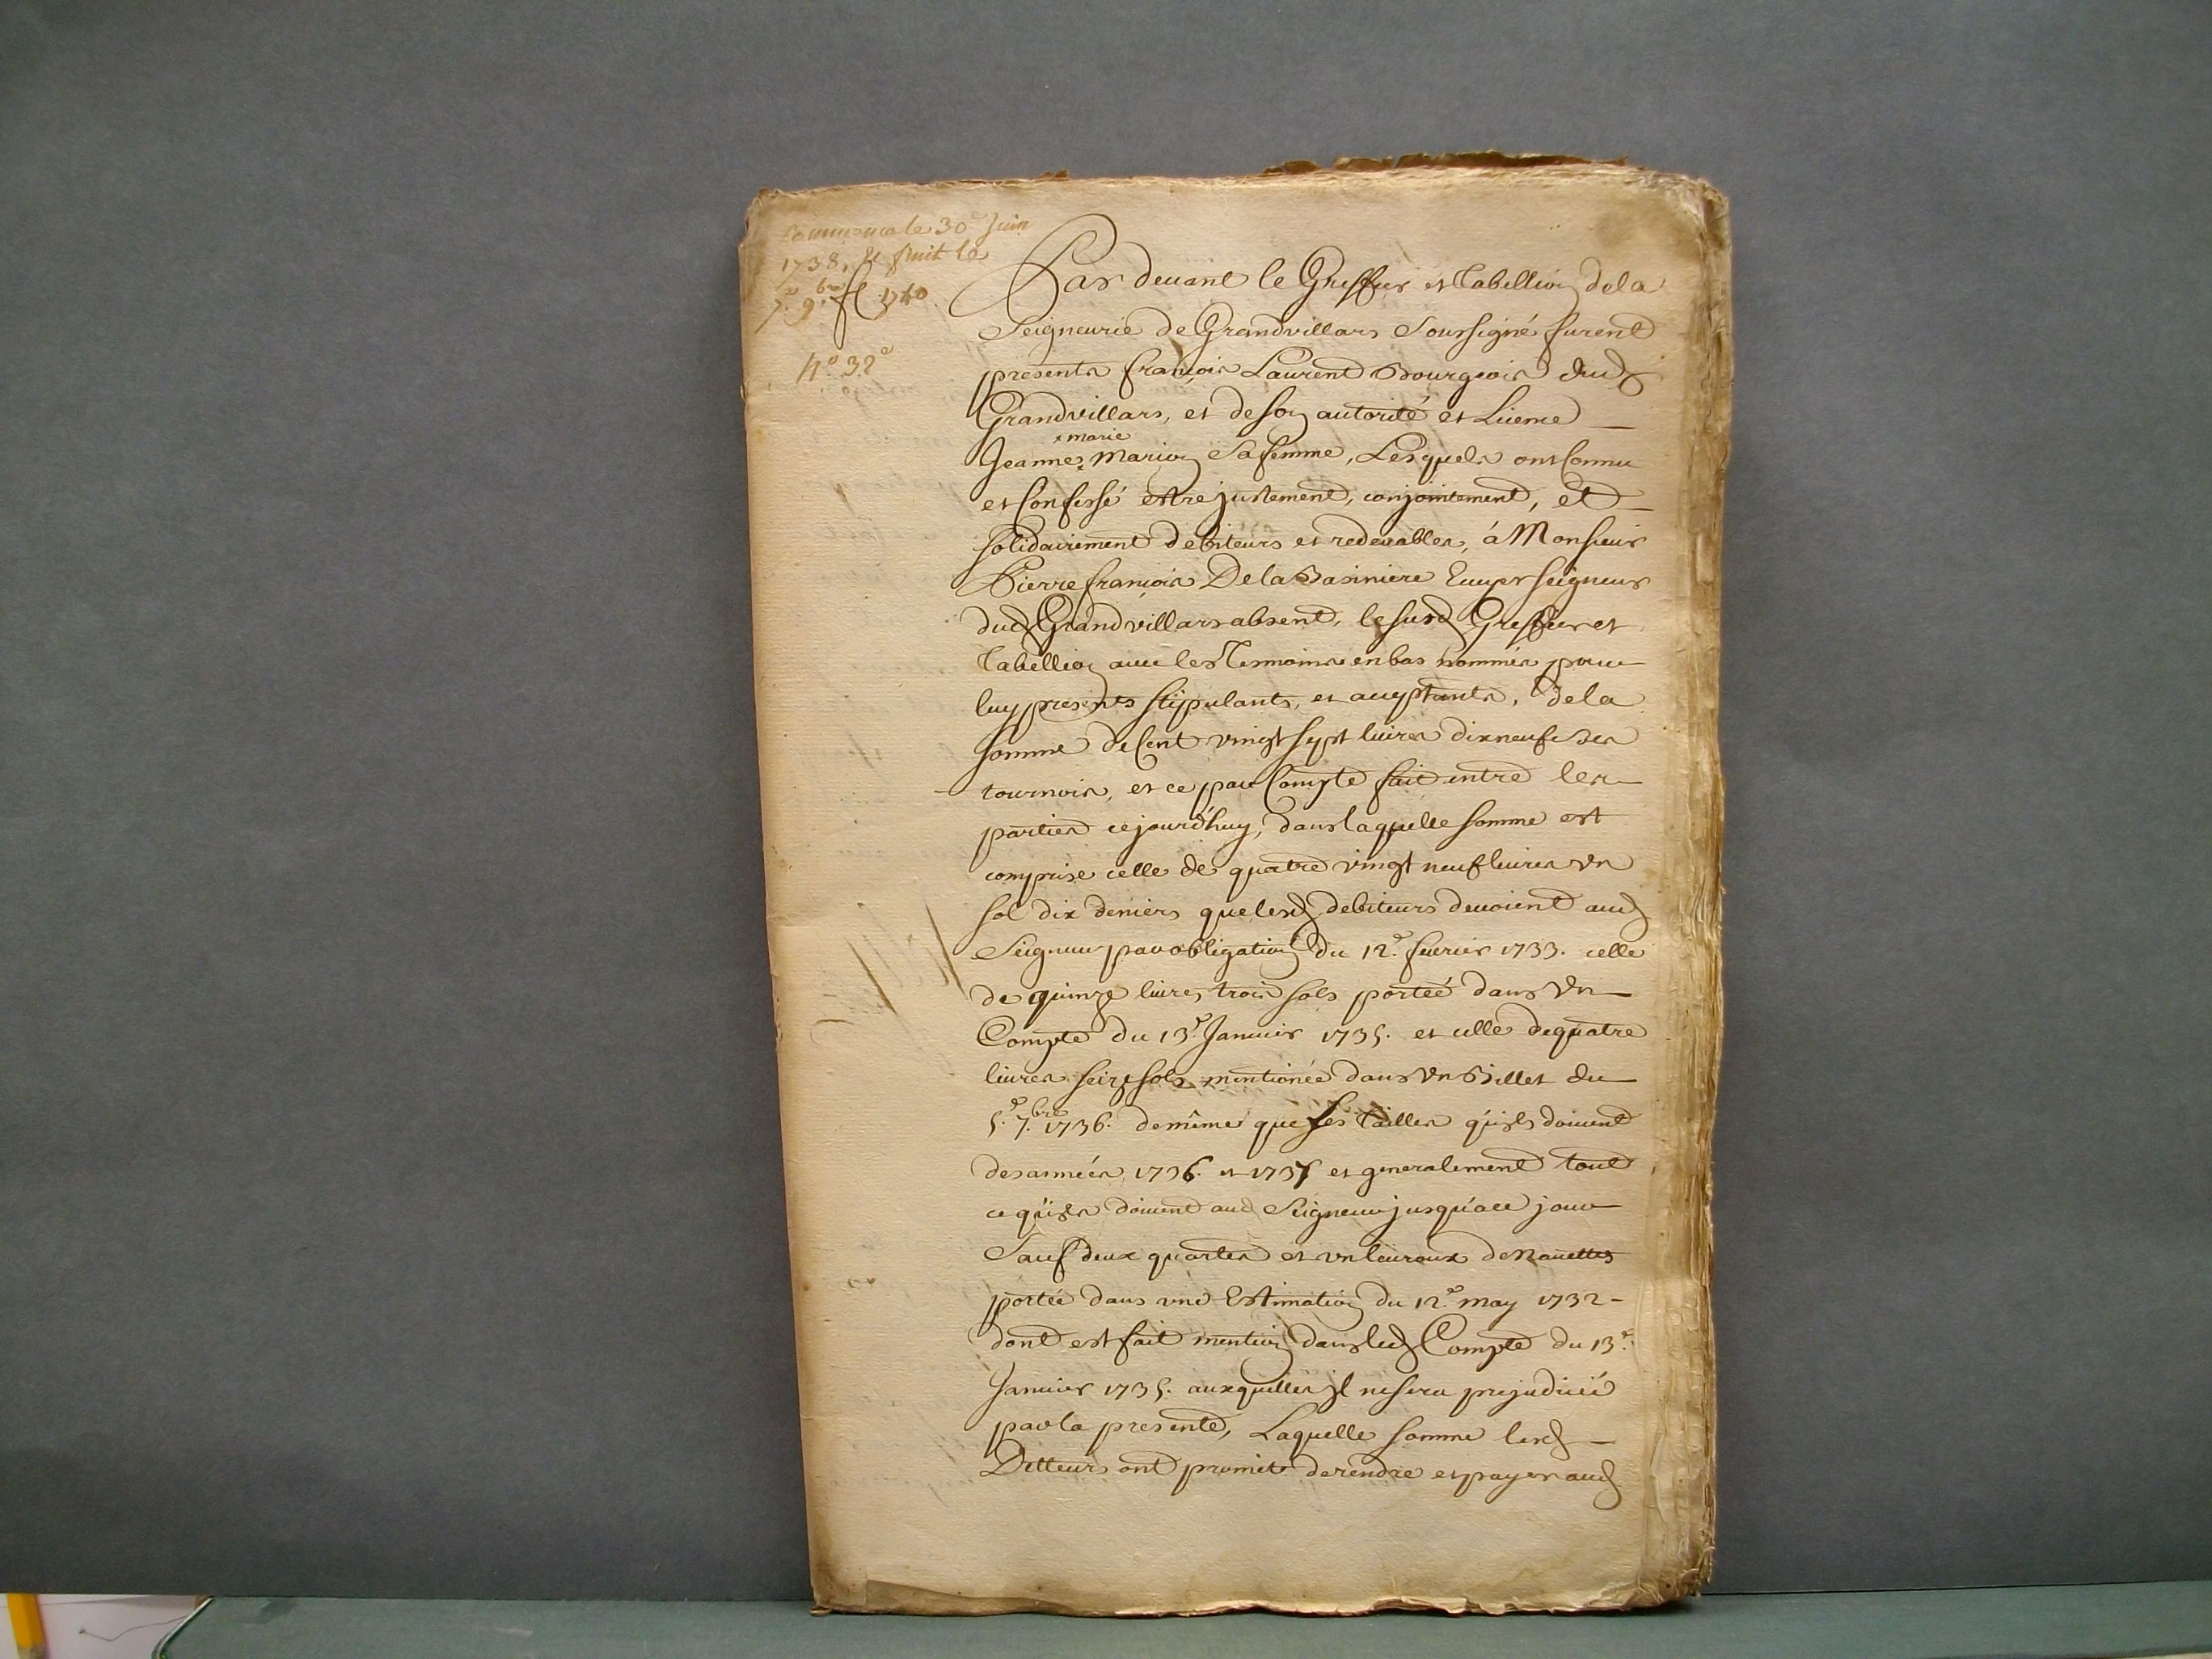 Commence le 30e Juin
1738, & finit le
7e 9bre 1740
No 32e
Par devant le Greffier et Tabellion de la
Seigneurie de Grandvillars Soussigné furent
presents françois Laurent Bourgeois dud
Grandvillars, et de son autorité et Licence
marie
Jeanne Marion Sa femme, Lesquels ont Connu
et Confessé estre justement, conjointement, et
solidairement debiteurs et redevables, á Monsieur
Pierre françois De la Basiniere Ecuyer Seigneur
dud Grandvillars absent, le susd Greffier et
Tabellion avec les Tesmoins en bas nommés pour
luy presents stipulants, et acceptants, de la
somme de Cent vingt sept livres dix neuf
tournois, et ce par Compte fait entre les
parties cejourd'huy, dans laquelle somme est
comprise celle de quatre vingt neuf livres vn
sol dix deniers que lesd debiteurs devoient aud
Seigneur par obligation du 12e fevrier 1733. celle
de quinze livres trois sols portée dans Vn
Compte du 13e Janvier 1735. et celle de quatre
livres seize sols mentionée dans Vn Billet du
5e 7bre 1736. de même que les Tailles qu'ils doivent
des années 1736. et 1737 et generalement tout
ce qu'ils doivent aud Seigneur jusqu'a ce jour
Sauf deux quartes et vn leuroux de Navettes
portée dans vne Estimation du 12e may 1732-
dont est fait mention dans led Compte du 13e
Janvier 1735. auxquelles Jl ne sera prejudicié
par la presente, Laquelle somme lesd
Detteurs ont promits de rendre et payer aud